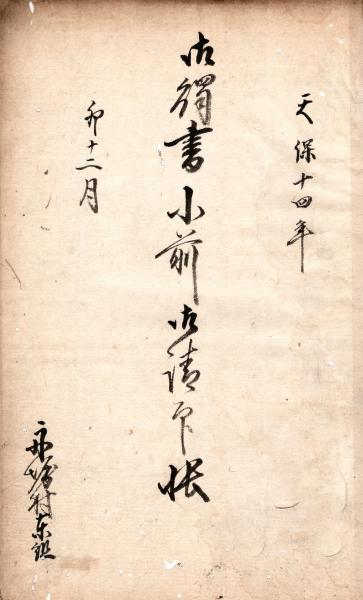 天保十四年
御觸書小前御請印帳
卯十二月
村東組